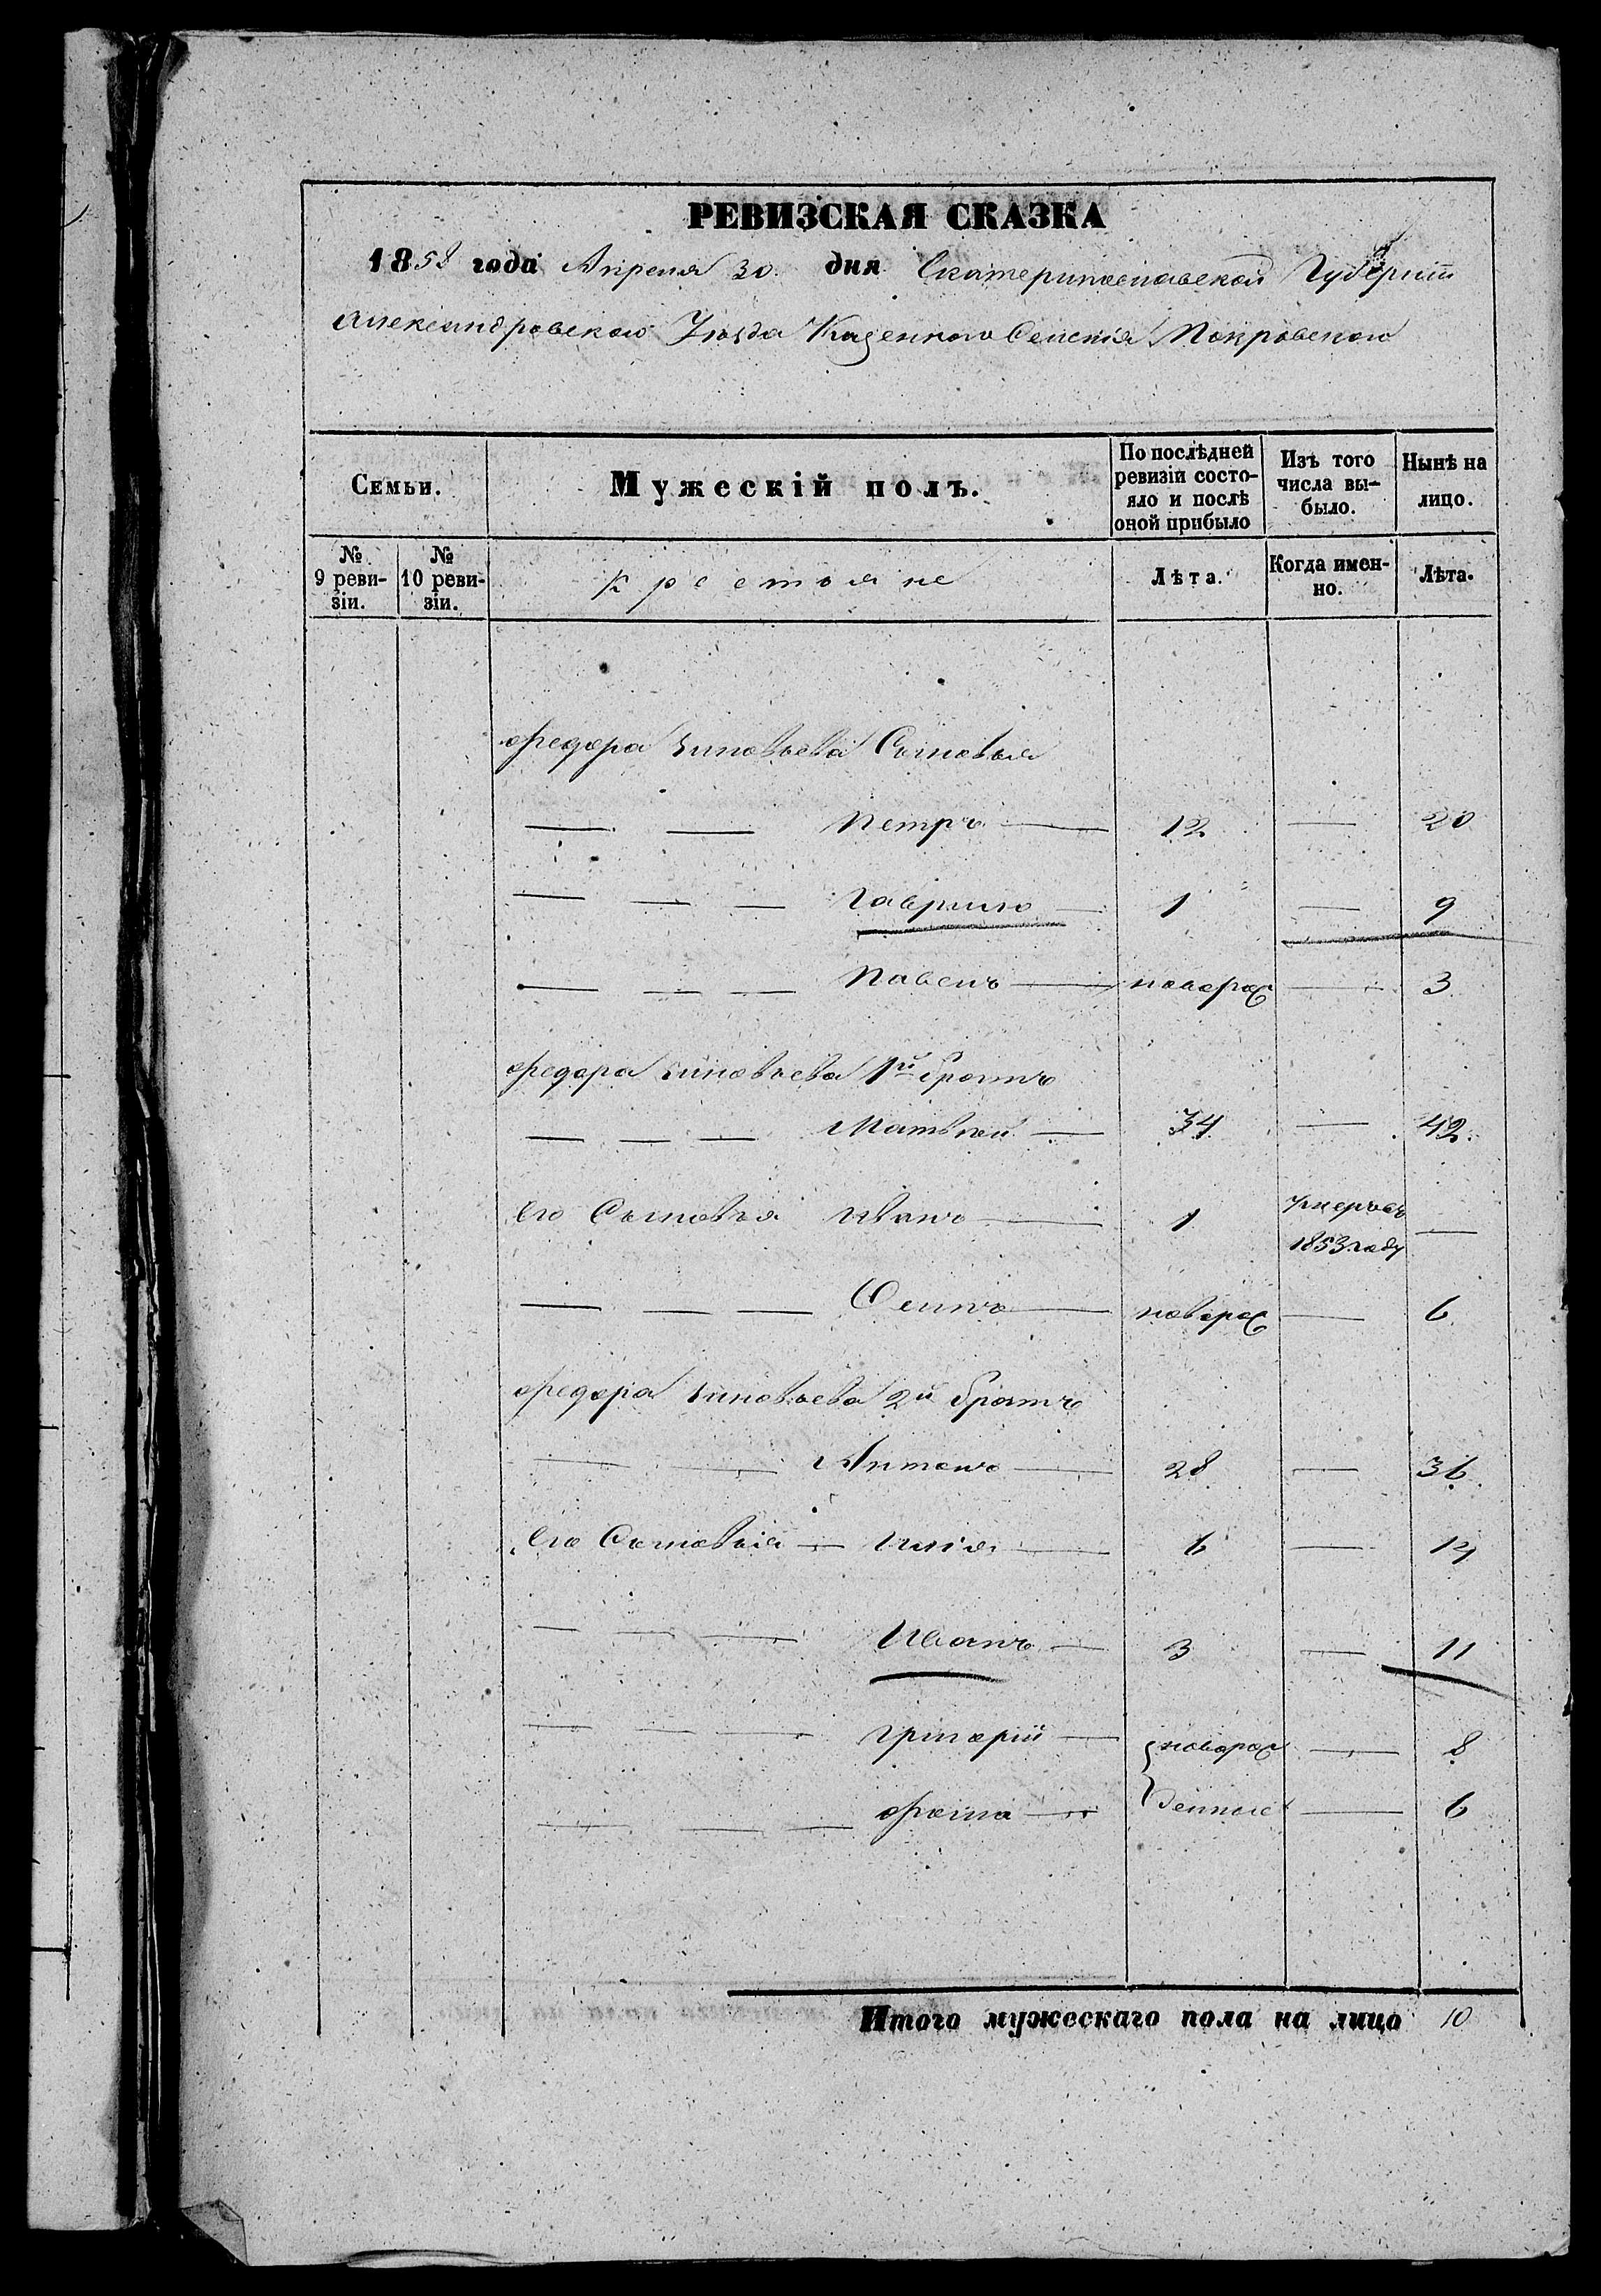 РЕВИЗСКАЯ СКАЗКА
1858 года Апреля 30 дня Екатеринославской Губернiи
Александровскаго Уезда Казеннаго Селенiя Покровского
Семьи. Мужескій полъ. По послѣдней ревизіи состо-яло и послѣ оной прибыло Изъ того числа вы-было. Нынѣ на лицо.
№ 9 реви-зіи. № 10 реви-зіи. Крестьяне Лѣта. Когда имен-но. Лѣта.
Федора Зиновьева Сыновья
Петръ 12 20
Гаврило 1 9
Павелъ новорож 3
Федора Зиновьева 1й братъ
Матвей 34 42
Его Сыновья Иванъ 1 умеръ въ 1853 году
новорож 6
Федора Зиновьева 2й братъ
Антонъ 28 36
Его Сыновья Илiя 6 14
Иванъ 3 11
Григорiй новорож 8
Фома денные 6
Итого мужескаго пола на лицо 10